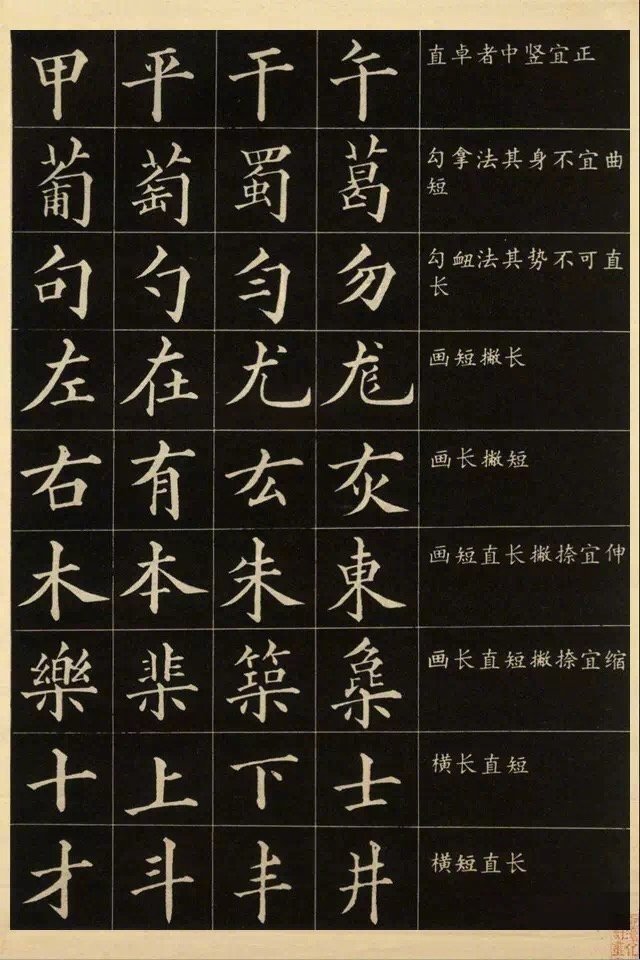 甲平干午 直卓者中竖宜正
葡萄蜀葛 勾拿法其身不宜曲
短
句勺匀勿 勾衄法其势不可直
长
左在尤尨 画短撇长
右有厷灰 画长撇短
木本朱東 画短直长撇捺宜伸
樂棐築 画长直短撇捺宜缩
十上下士 横长直短
才斗丰井 横短直长